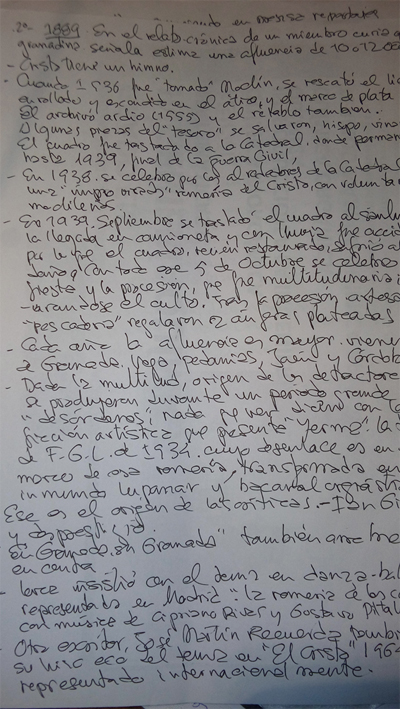 en nuestra reportaje
2ª 1889. En el relato-crónica de un miembro curia
granadina señala estima una afluencia de 10 o 12.00
- Cristo tiene un himno.
- Cuando 1936 fue "tomado" Moclín, se rescató el lie
enrollado y escondido en el ático, y el marco de plata
El archivo ardió (1955) y el retablo tambien.
Algunas piezas del "tesoro" se salvaron, hisopo, vina
El cuadro fue trasladado a la Catedral, donde perman
hasta 1939, final de la Guerra Civil,
- En 1938 se celebró por los alrededores de la Catedral
una "improvisada" romería del Cristo, con volunta
moclileños.
- En 1939. Septiembre se trasladó el cuadro al Santua
la llegada en camioneta y con lluvia fue acci
por lo que el cuadro, recien restaurado, sufrió al
daño. Con todo ese 5 de Octubre se celebró
fiesta y la procesión, que fue multitudinaria
-urandose el culto. Tras la procesión
"pescadería" regalaron 2 anforas plateadas
- Cada año la afluencia es mayor. viene
de Granada, Vega, pedanias, Jaén y Córdob
- Dada la multitud, origen de los detractore
se produjeran durante un periodo grande
"desórdenes", nada que ver, dicen con la
ficción artística que presenta "Yerma". la
de F.G.L. de 1934. cuyo desenlace es en
marco de esa romería, transformada en
inmundo lupanar y bacanal
Ese es el origen de las críticas. - Ian Gi
y
en Granada, su Granada" también arre
en contra
- Lorca insistió con el tema en danza-bal
representada en Madrid "la romería de los co
con música de Cipriano River y Gustavo Pital
- Otro escritor, José Martín Recuerda también
se hizo eco del tema en "El Cristo" 1964
representado internacionalmente.